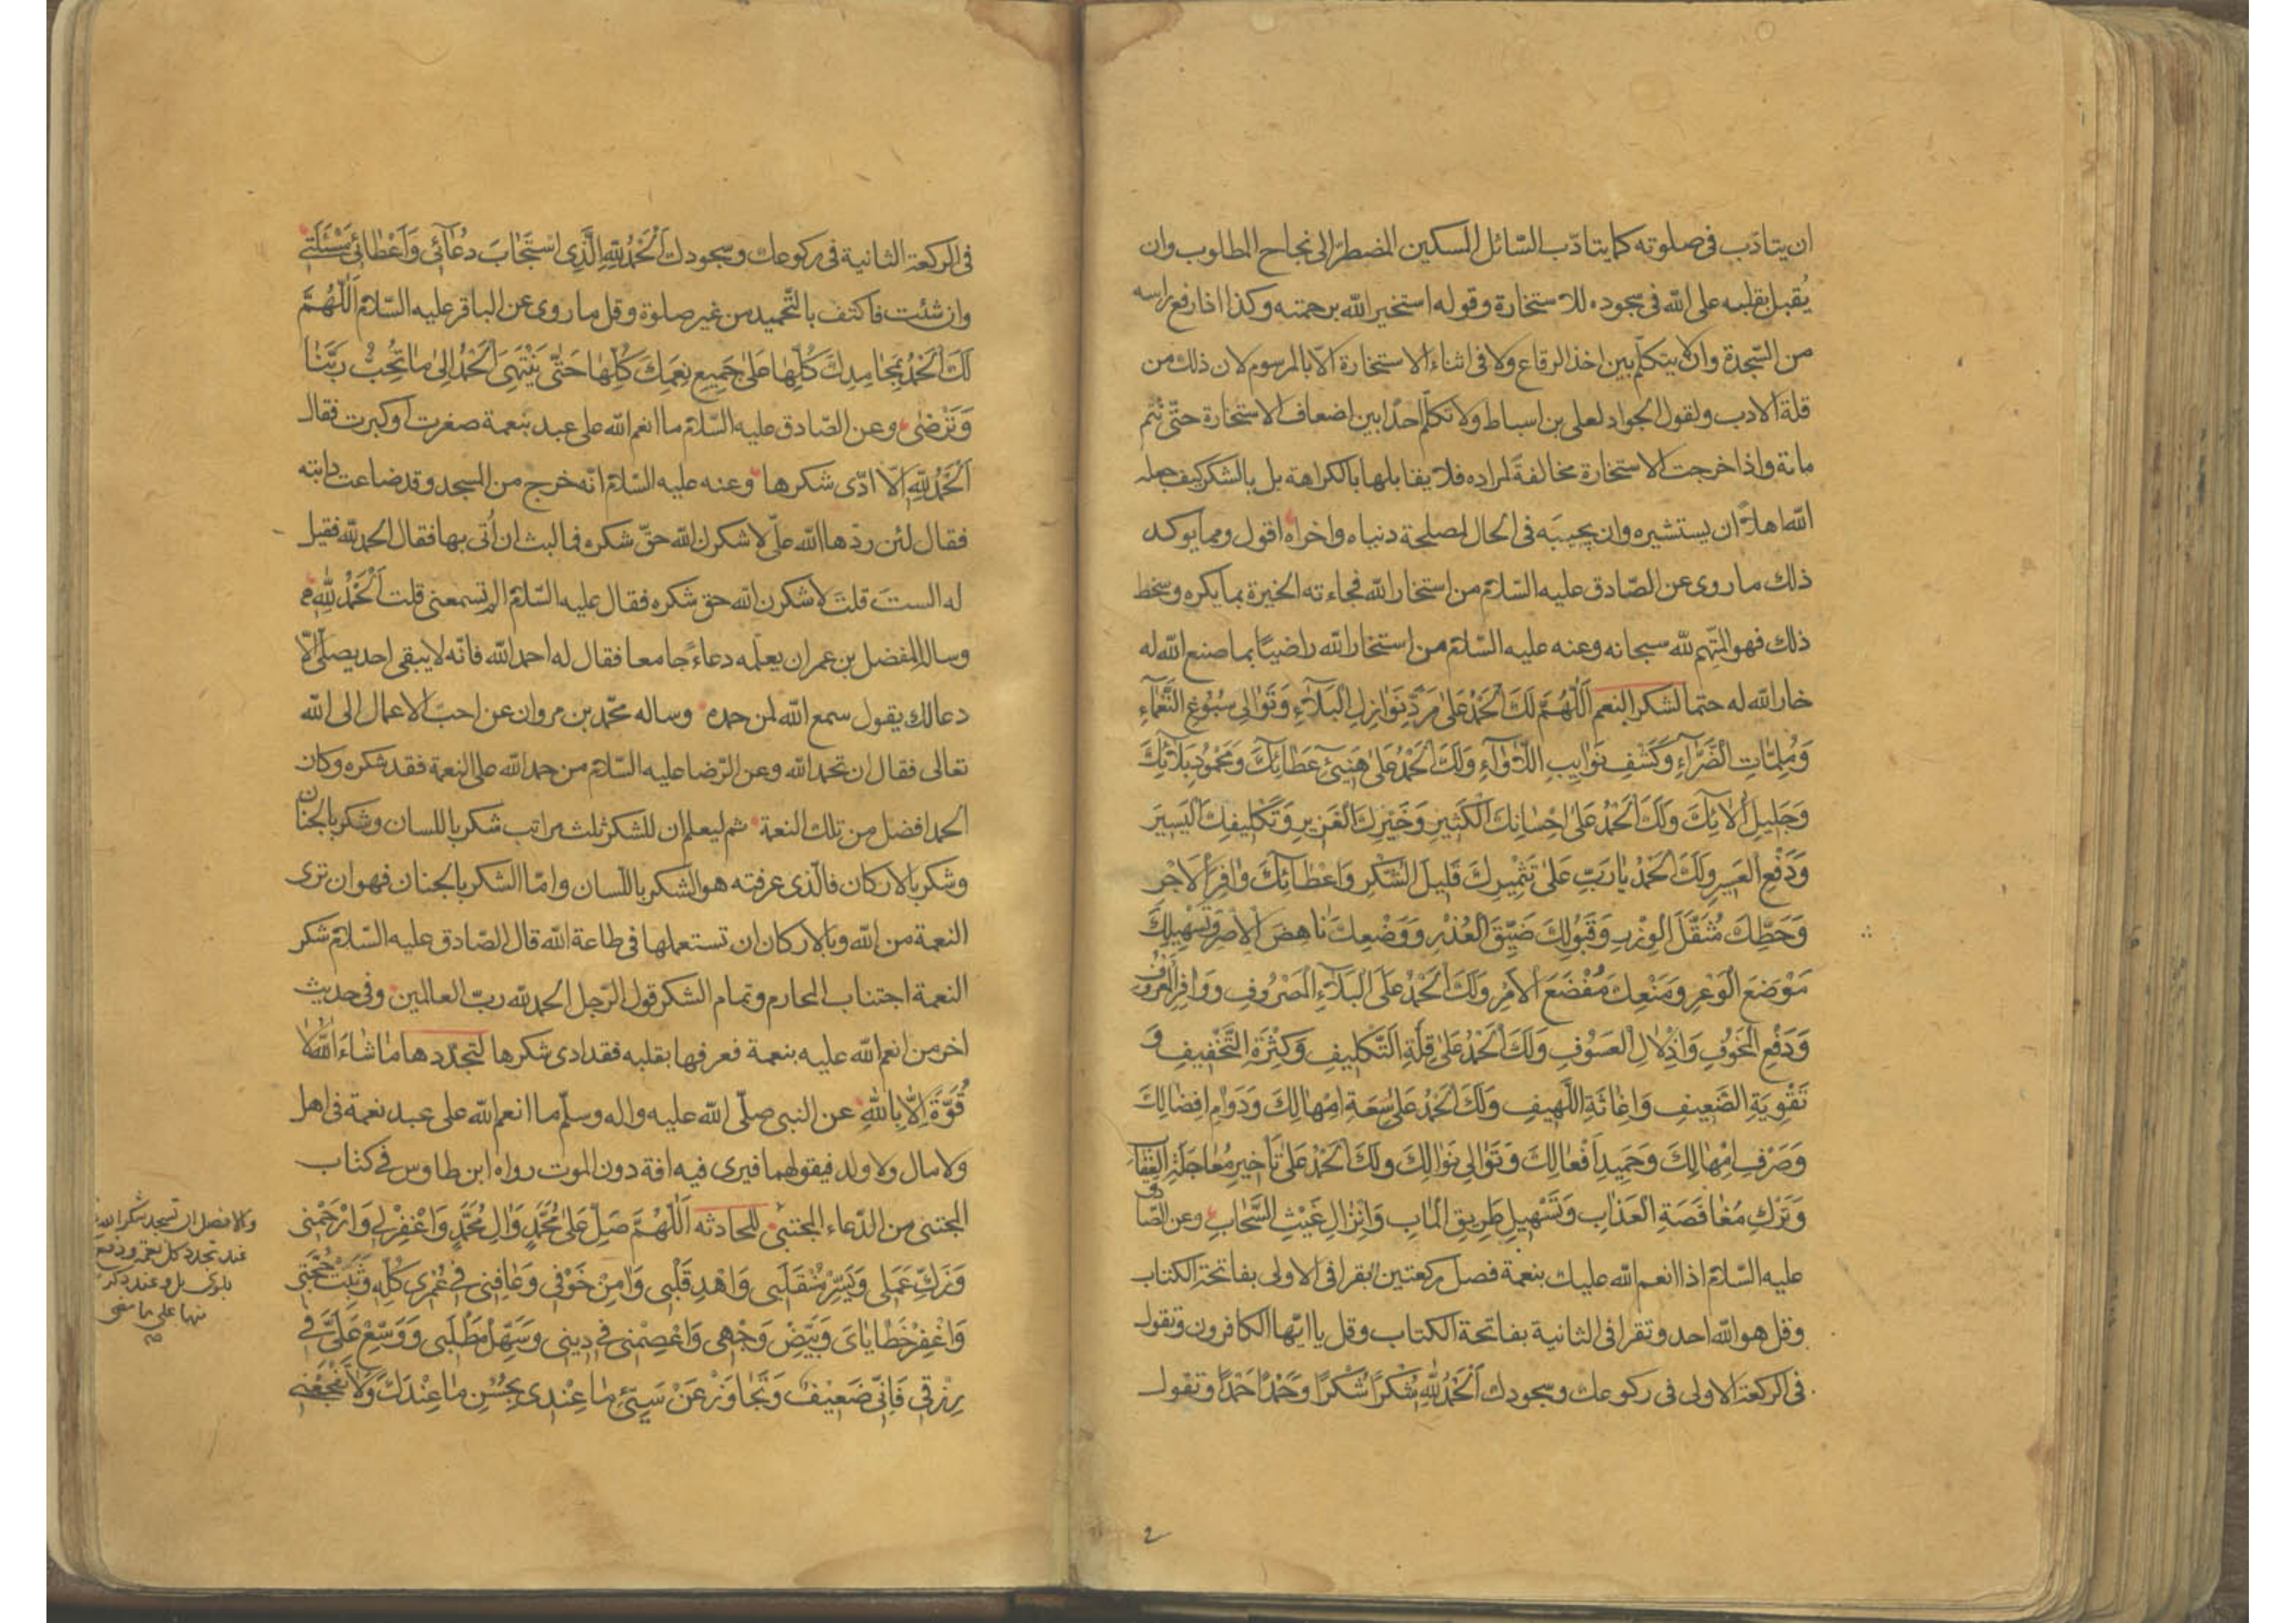 ان يتادّب فى صلوته كما يتادّب السّائل المسكين المضطرّ الى نجاح المطلوب وان
يُقبل بقلبه على الله فى سجوده للاستخارة وقوله استخير الله برحمته وكذا اذا رفع راسه
من السّجدة وان لا يتكلّم بين اخذ الرقاع ولا فى اثناء الاستخارة الّا بالمرسوم لان ذلك من
قلة الادب ولقول الجواد لعلى بن اسباط ولا تكلّم احدًا بين اضعاف الاستخارة حتّى تتم
مائة واذا خرجت الاستخارة مخالفةً لمراده فلا يقابلها بالكراهة بل بالشكر كيف جعله
الله اهلاً ان يستشيره وان يجيبَه فى الحال لمصلحة دنياه واخراه اقول ومما يوكد
ذلك ما روى عن الصّادق عليه السّلام من استخار الله فجاءته الخيرة بما يكره وسخط
ذلك فهو المتّهم لله سبحانه وعنه عليه السّلام من استخار الله راضيًا بما صنع الله له
خار الله له حتما لشكر النعم اَللّٰهُمَّ لَكَ الْحَمْدُ عَلىٰ مَرَدِّ نَوٰازِلِ الْبَلآءِ وَتَوٰالى سُبُوغِ النَّعْمٰآءِ
وَمُلِمّٰاتِ الضَّرّٰآءِ وَكَشْفِ نَوٰايِبِ اللَّأوٰآءِ وَلَكَ الْحَمْدُ عَلىٰ هَنِيئِ عَطٰائِكَ وَمَحْمُودِ بَلآئِكَ
وَجَليلِ اٰلائِكَ وَلَكَ الْحَمْدُ عَلىٰ اِحْسٰانِكَ الْكَثيرِ وَخَيْرِكَ الْغَزيرِ وَتَكْليفِكَ الْيَسيرَ
وَدَفْعِ الْعَسيرِ وَلَكَ الْحَمْدُ يٰا رَبِّ عَلىٰ تَثْميرِكَ قَليلَ الشُّكْرِ وَاِعْطٰائِكَ وٰافِرَ الْاَجْرِ
وَحَطِّكَ مُثَقَّلَ الْوِزْرِ وَقَبُولِكَ ضَيِّقَ الْعُذْرِ وَوَضْعِكَ نٰاهِضَ الْاِصْرِ وَتَسْهيلِكَ
مَوْضَعَ الْوَعْرِ وَمَنْعِكَ مُفْضَعَ الْاَمْرِ وَلَكَ الْحَمْدُ عَلَى الْبَلآءِ الْمَصْرُوفِ وَوٰافِرِ الْمَعْرُوفِ
وَدَفْعِ الْمَخُوفِ وَاِذْلٰالِ الْعَسُوفِ وَلَكَ الْحَمْدُ عَلىٰ قِلَّةِ التَّكْليفِ وَكَثْرَةِ التَّخْفيفِ وَ
تَقْوِيَةِ الضَّعيفِ وَاِغٰاثَةِ اللَّهيفِ وَلَكَ الْحَمْدُ عَلىٰ سَعَةِ اِمْهٰالِكَ وَدَوٰامِ اِفْضٰالِكَ
وَصَرْفِ اِمْهٰالِكَ وَحَميدِ اَفْعٰالِكَ وَتَوٰالى نَوٰالِكَ ولَكَ الْحَمْدُ عَلىٰ تَأخيرِ مُعٰاجَلَةِ الْعِقٰابِ
وَتَرْكِ مُغٰافَصَةِ الْعَذٰابِ وَتَسْهيلِ طَريقِ الْمَاٰبِ وَاِنْزٰالِ غَيْثِ السَّحٰابِ وعن الصّادق
عليه السّلام اذا انعم الله عليك بنعمة فصل ركعتين تقرا فى الاولى بفاتحة الكتاب
وقل هو الله احد وتقرا فى الثانية بفاتحة الكتاب وقل يا ايّها الكافرون وتقول
فى الركعة الاولى فى ركوعك وسجودك اَلْحَمْدُ لِلّٰهِ شُكْرًا شُكْرًا وَحَمْدًا حَمْدًا وتقول
فى الركعة الثانية فى ركوعك وسجودك اَلْحَمْدُ لِلّٰهِ الَّذِى اسْتَجٰابَ دُعٰائى وَاَعْطٰانى مَسْئَلَتى
وان شئت فاكتف بالتّحميد من غير صلوة وقل ما روى عن الباقر عليه السّلام اَللّٰهُمَّ
لَكَ الْحَمْدُ بِمَحٰامِدِكَ كُلِّهٰا عَلىٰ جَميعِ نِعَمِكَ كُلِّهٰا حَتّٰى يَنْتَهِىَ الْحَمْدُ اِلىٰ مٰا تُحِبُّ رَبَّنٰا
وَتَرْضٰى وعن الصّادق عليه السّلام ما انعم الله على عبد بنعمة صغرت او كبرت فقال
اَلْحَمْدُ لِلّٰهِ اِلّا ادّى شكرها وعنه عليه السّلام انّه خرج من المسجد وقد ضاعت دابته
فقال لئن ردّها الله علىّ لاشكرن الله حقّ شكره فما لبث ان اُتى بها فقال الحمد لله فقيل
له الستَ قلتَ لاشكرن الله حق شكره فقال عليه السّلام الم تسمعنى قلت اَلْحَمْدُ لِلّٰهِ
وسال المفضل بن عمر ان يعلّمه دعاءً جامعا فقال له احمد الله فانّه لا يبقى احد يصلّى الّا
دعا لك يقول سمع الله لمن حمده وساله محمّد بن مروان عن احبّ الاعمال الى الله
تعالى فقال ان تحمد الله وعن الرّضا عليه السّلام من حمد الله على النعمة فقد شكره وكان
الحمد افضل من تلك النعمة ثم ليعلم ان للشكر ثلث مراتب شكر باللسان وشكر بالجنان
وشكر بالاركان فالّذى عرفته هو الشكر باللّسان وامّا الشكر بالجنان فهو ان ترى
النعمة من الله وبالاركان ان تستعملها فى طاعة الله قال الصّادق عليه السّلام شكر
النعمة اجتناب المحارم وتمام الشكر قول الرّجل الحمد لله ربّ العالمين وفى حديث
اخر من انعم الله عليه بنعمة فعرفها بقلبه فقد ادى شكرها لتجدّدها مٰا شٰاءَ اللّٰهُ لٰا
قُوَّةَ اِلّٰا بِاللّٰهِ عن النبى صلّى الله عليه واله وسلّم ما انعم الله على عبد نعمة فى اهل
ولا مال ولا ولد فيقولهما فيرى فيه افة دون الموت رواه ابن طاوس فى كتاب
المجتنى من الدّعاء المجتبى للحادثه اَللّٰهُمَّ صَلِّ عَلىٰ مُحَمَّدٍ وَاٰلِ مُحَمَّدٍ وَاغْفِرْ لى وَارْحَمْنى
وَزَكِّ عَمَلى وَيَسِّرْ مُنْقَلَبى وَاهْدِ قَلْبى وَاٰمِنْ خَوْفى وَعٰافِنى فى عُمْرى كُلِّهِ وَثَبِّتْ حُجَّتى
وَاغْفِرْ خَطٰايٰاىَ وَبَيِّضْ وَجْهى وَاعْصِمْنى فى دينى وَسَهِّلْ مَطْلَبى وَوَسِّعْ عَلَىَّ فى
رِزْقى فَاِنّى ضَعيفٌ وَتَجٰاوَزْ عَنْ سَيِّئِ مٰا عِنْدى بِحُسْنِ مٰا عِنْدَكَ وَلٰا تَفْجَعْنى
والافضل ان تسجد شكرا لله
عند تجدد كل نعمة ودفع
بلوى بل وعند ذكر
منها على ما مضى